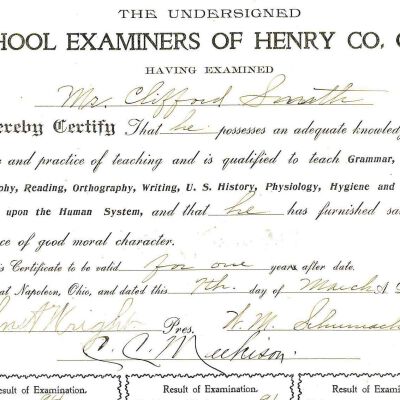 THE UNDERSIGNED
CHOOL EXAMINERS OF HENRY CO.
HAVING EXAMINED
Mr. Clifford Smith
ereby Certify That he possesses an adequate knowledg
and practice of teaching and is qualified to teach Grammar,
phy, Reading, Orthography, Writing, U. S. History, Physiology, Hygiene and
upon the Human System, and that he has furnished sa
ce of good moral character.
is Certificate to be valid for one years after date.
at Napoleon, Ohio, and dated this 7th. day of March A
Wright Pres. W. M. Schumach
C. C. Meekison.
Result of Examination. Result of Examination. Result of Examination.